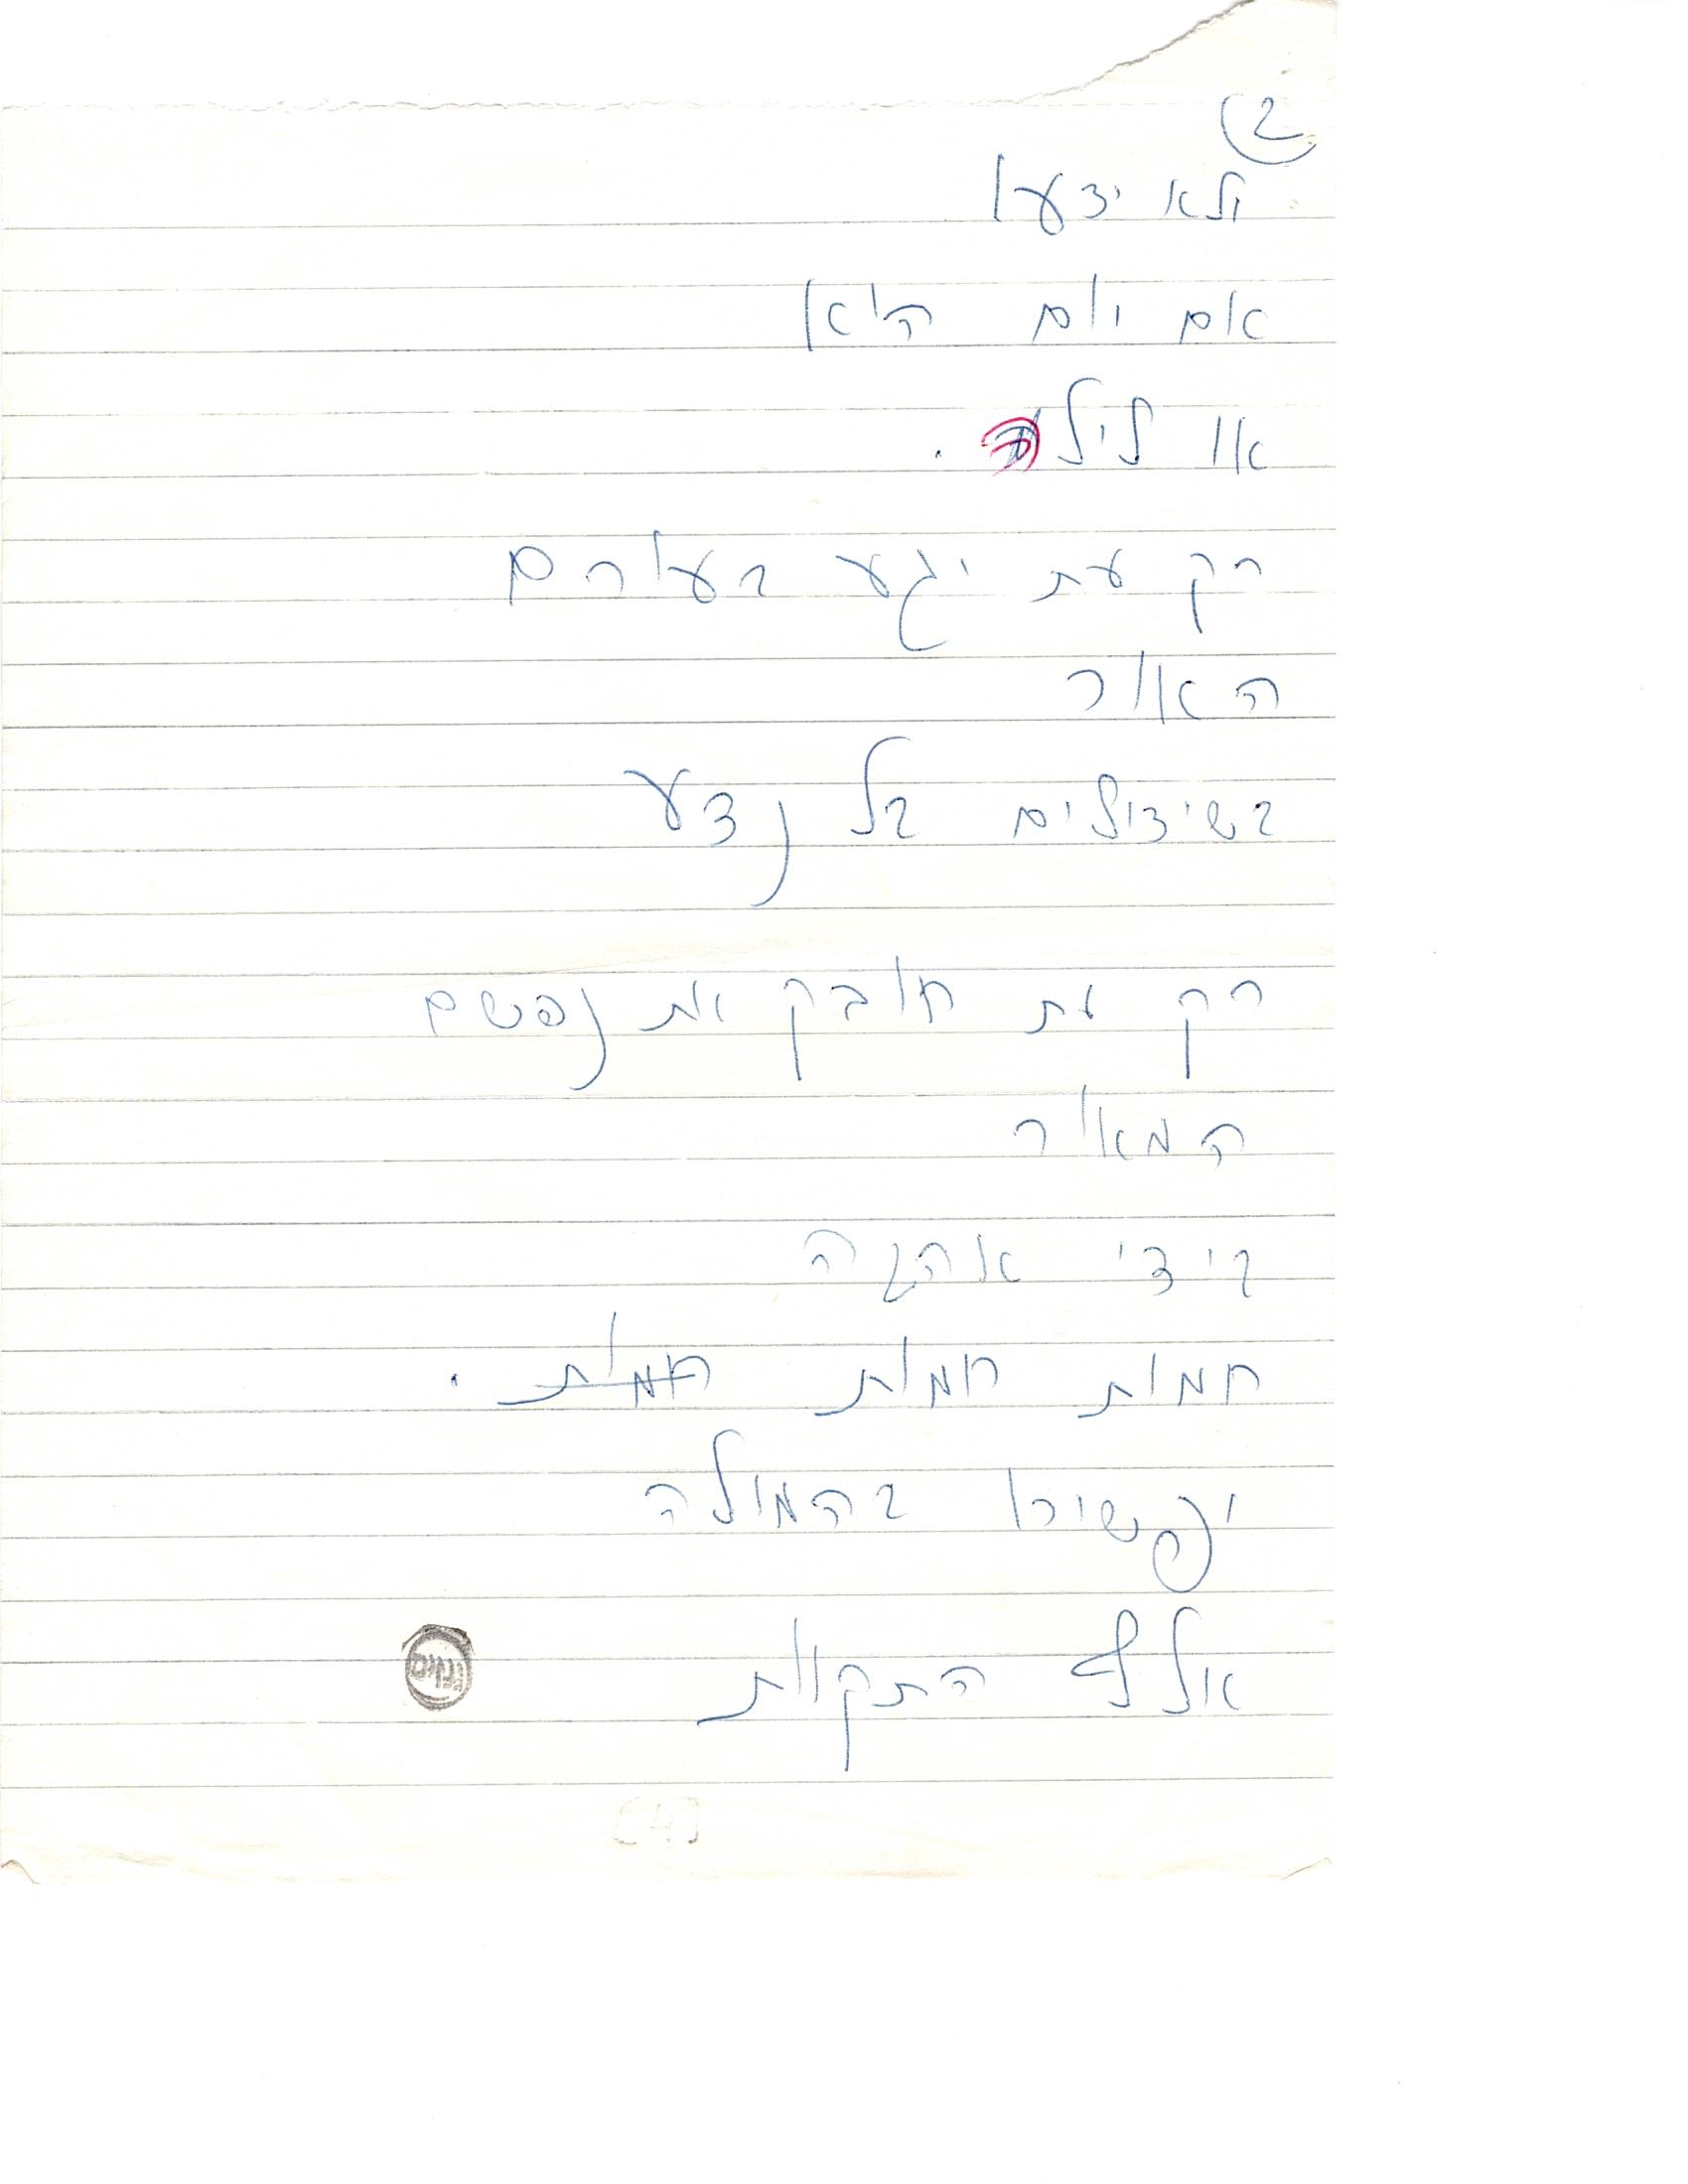 2
ולא ידעו
אם יום הוא
או ליל.
רק עת יגע בעורם
האור
בשידולים בל נדע
רק עת חובק את נפשם
המאור
בידי אהבה
חמות חמות חמות.
יפשירו בהמולה
אלף התקוות
גנזים